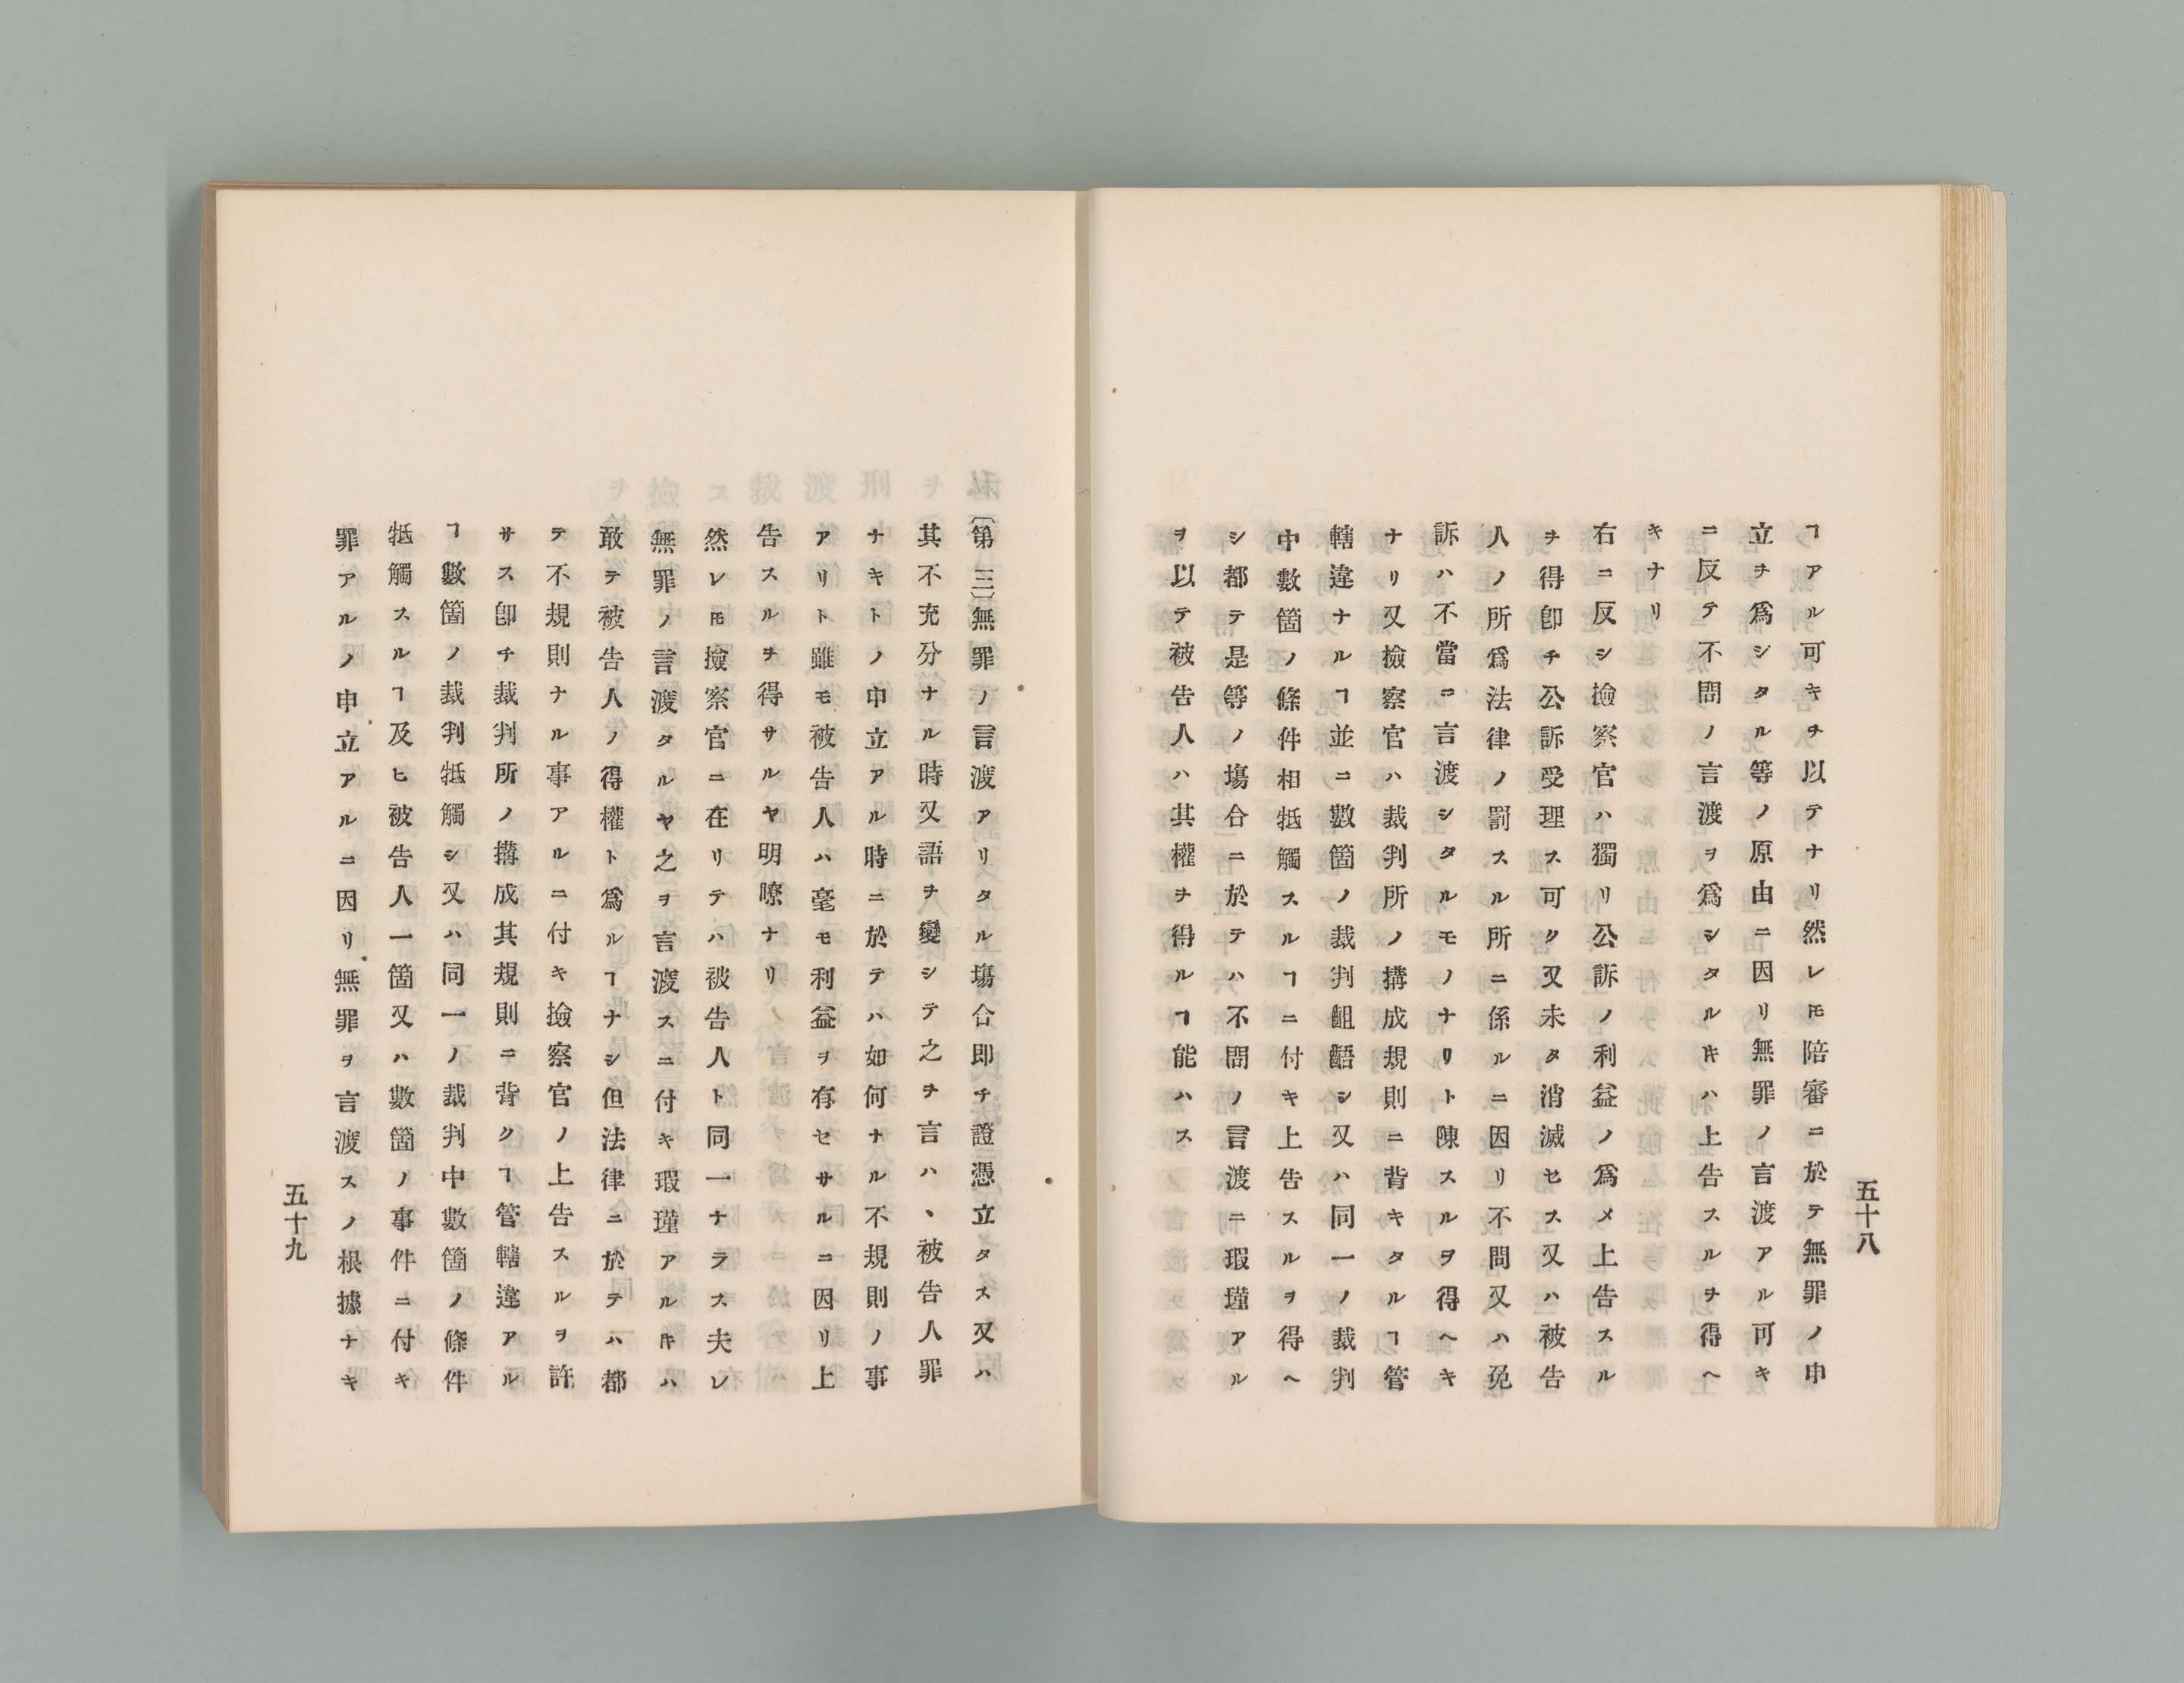 五十八
ヿアル可キヲ以テナリ然レ𪜈陪審ニ於テ無罪ノ申
立ヲ爲シタル等ノ原由ニ因リ無罪ノ言渡アル可キ
ニ反テ不問ノ言渡ヲ爲シタルキハ上告スルヲ得ヘ
キナリ
右ニ反シ撿察官ハ獨リ公訴ノ利益ノ爲メ上告スル
ヲ得卽チ公訴受理ス可ク又未タ消滅セス又ハ被告
人ノ所爲法律ノ罰スル所ニ係ルニ因リ不問又ハ免
訴ハ不當ニ言渡シタルモノナリト陳スルヲ得ヘキ
ナリ又撿察官ハ裁判所ノ搆成規則ニ背キタルヿ管
轄違ナルヿ並ニ數箇ノ裁判齟齬シ又ハ同一ノ裁判
中數箇ノ條件相牴觸スルヿニ付キ上告スルヲ得ヘ
シ都テ是等ノ塲合ニ於テハ不問ノ言渡ニ瑕瑾アル
ヲ以テ被告人ハ其權ヲ得ルヿ能ハス
〔第三〕無罪ノ言渡アリタル塲合即チ證憑立タス又ハ
其不充分ナル時又語ヲ變シテ之ヲ言ハヽ被告人罪
ナキトノ申立アル時ニ於テハ如何ナル不規則ノ事
アリト雖モ被告人ハ毫モ利益ヲ有セサルニ因リ上
告スルヲ得サルヤ明瞭ナリ
然レ𪜈撿察官ニ在リテハ被告人ト同一ナラス夫レ
無罪ノ言渡タルヤ之ヲ言渡スニ付キ瑕瑾アルキハ
敢テ被告人ノ得權ト爲ルヿナシ但法律ニ於テハ都
テ不規則ナル事アルニ付キ撿察官ノ上告スルヲ許
サス卽チ裁判所ノ搆成其規則ニ背クヿ管轄違アル
ヿ數箇ノ裁判牴觸シ又ハ同一ノ裁判中數箇ノ條件
牴觸スルヿ及ヒ被告人一箇又ハ數箇ノ事件ニ付キ
罪アルノ申立アルニ因リ無罪ヲ言渡スノ根據ナキ
五十九